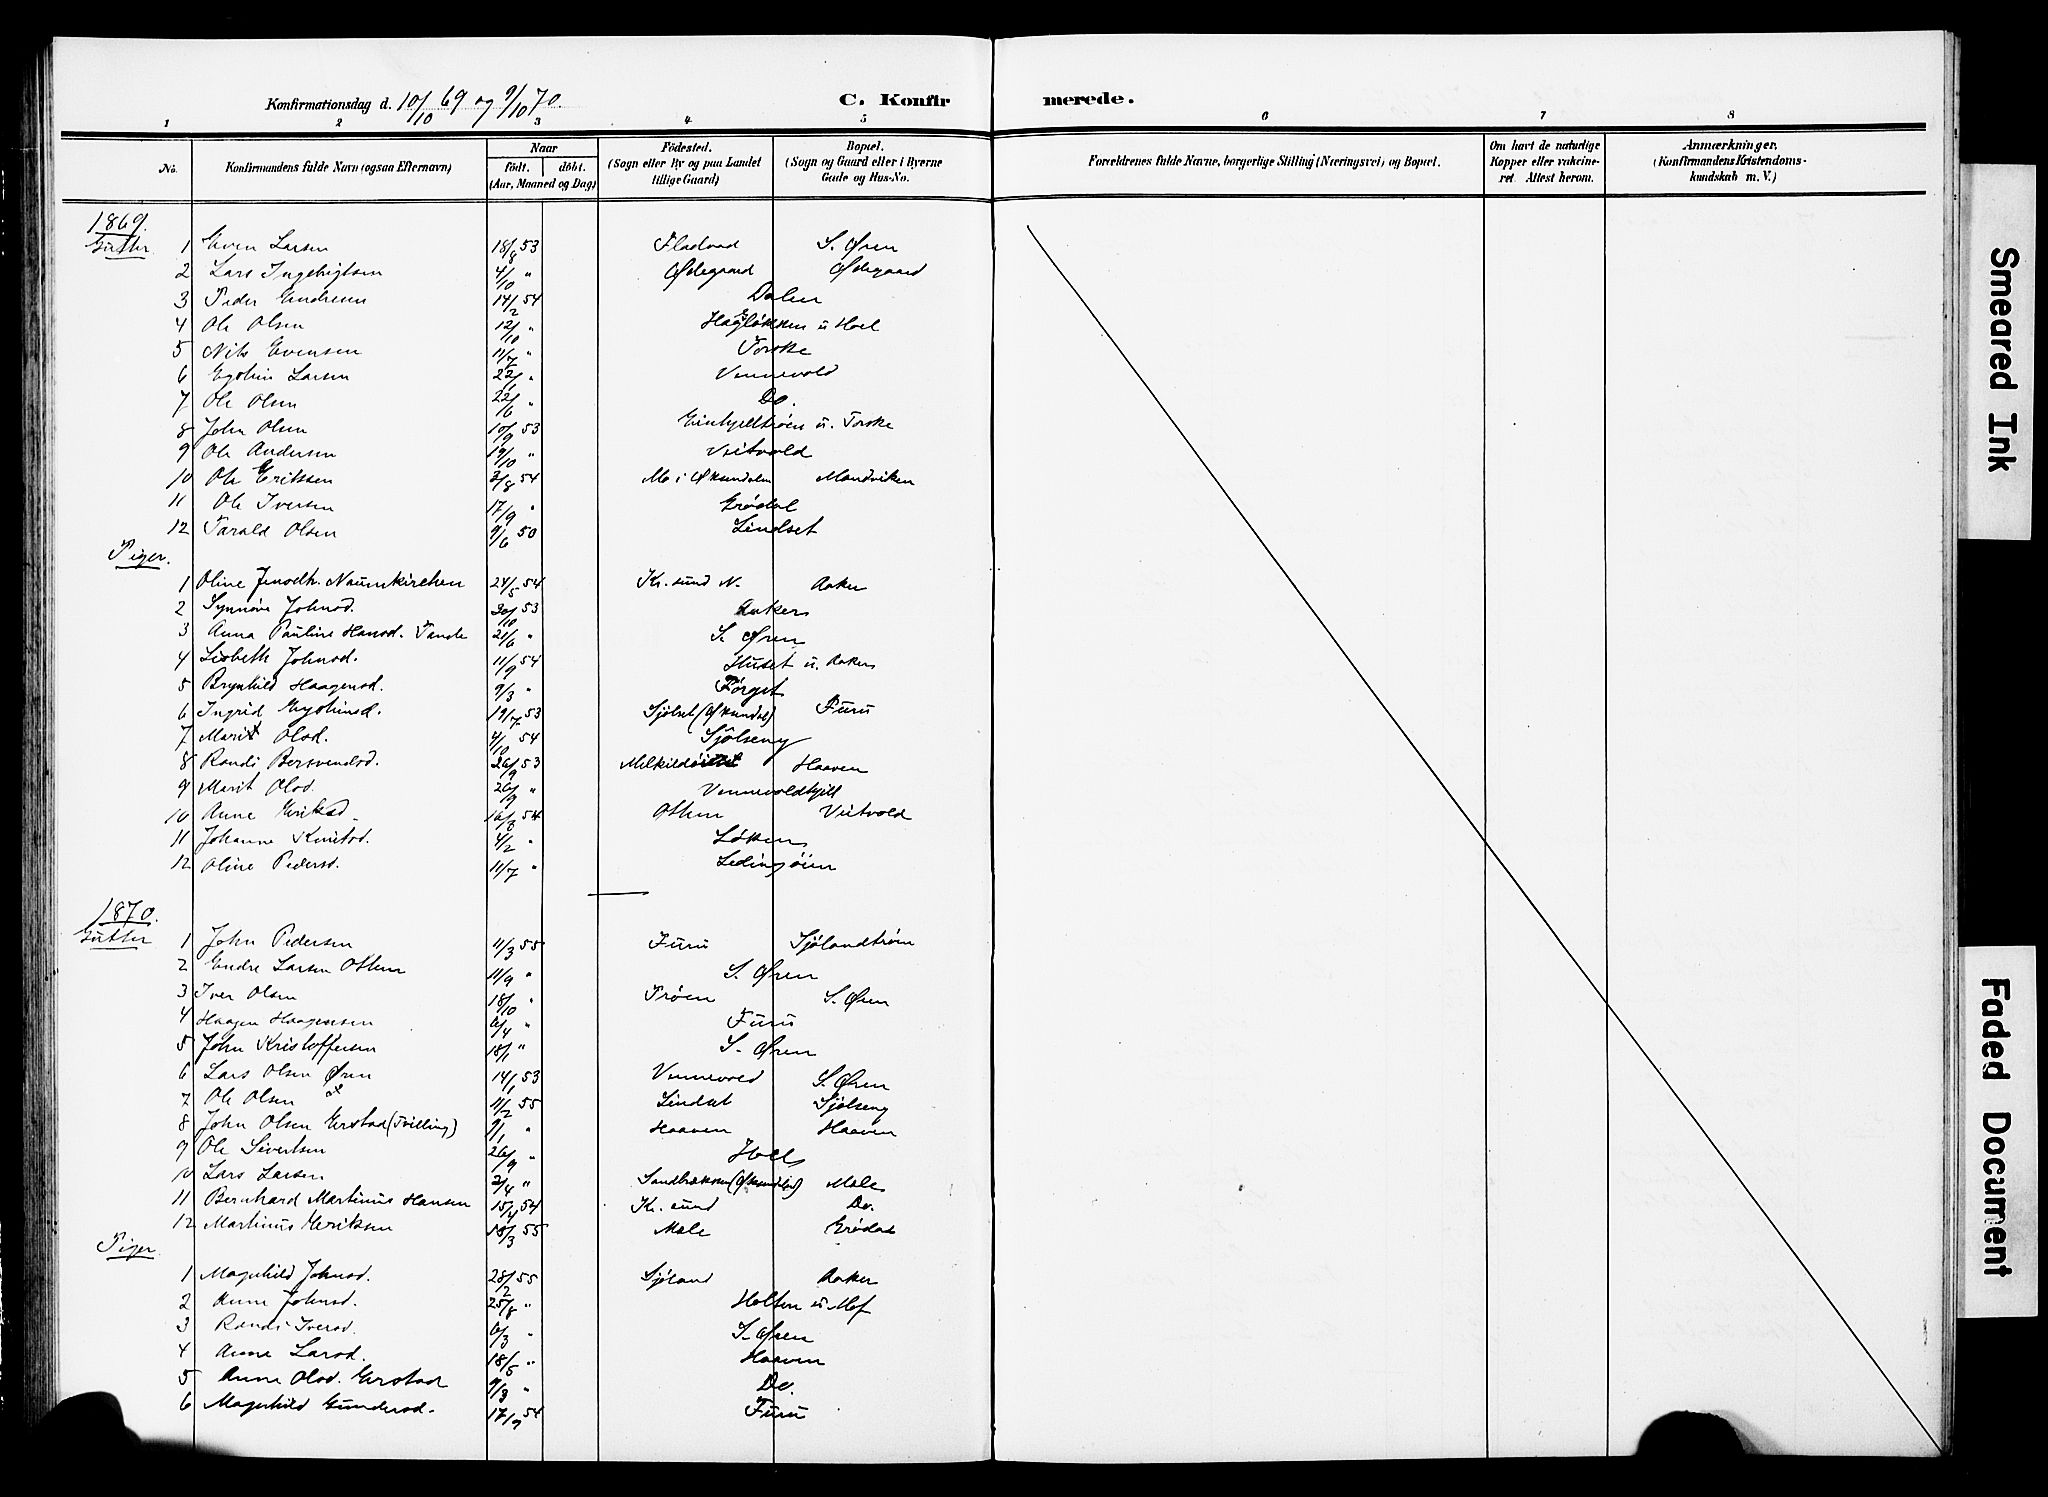 Konfirmationsdag d. 10/10 69 og 9/10 70.
C. Konfirmerede.
1 2 3 4 5 6 7 8
No.
Konfirmandens fulde Navn (ogsaa Efternavn)
Naar
født. døbt.
(Aar, Maaned og Dag)
Fødested.
(Sogn eller By og paa Landet
tillige Gaard)
Bopæl.
(Sogn og Gaard eller i Byerne
Gade og Hus-No.
Forældrenes fulde Navne, borgerlige Stilling (Næringsvei) og Bopæl.
Om havt de naturlige
Kopper eller vakcine-
ret. Attest herom.
Anmærkninger.
(Konfirmandens Kristendoms-
kundskab m. V.)
1869.
Gutter 1 Even Larsen 18/8 53 Fladvad S. Øren
2 Lars Ingebrigtsen 4/10 " Ødegaard Ødegaard
3 Peder Endresen 14/2 54 Dalen
4 Ole Olsen 12/10 " Hagløkken u Hoel
5 Nils Evensen 11/7 " Torske
6 Eystein Larsen 22/1 " Vennevold
7 Ole Olsen 22/6 " Do.
8 John Olsen 10/9 53 u. Torske
9 Ole Andersen 19/10 " Veitvold
10 Ole Eriksen 3/8 54 Mo i Øksendalen Mandviken
11 Ole Iversen 17/9 " Grødal
12 Tarald Olsen 9/6 50 Lindset
Piger.
1 Oline Jensdtr. Naumkirchen 24/5 54 Kr.sund N. Aaker
2 Synnøve Johnsd. 30/10 53 Aaker
3 Anna Pauline Hansd. Tande 21/6 " S. Øren
4 Lisbeth Johnsd. 11/9 54 Huset u. Aaker
5 Brynhild Haagensd. 9/3 " Tørget
6 Ingrid Eysteinsd. 19/7 53 Sjølset (Øksendal) Furu
7 Marit Olsd. 4/10 54 Sjølseng
8 Randi Bersvendsd. 26/9 53 Haaven
9 Marit Olsd. 26/9 " Vennevoldhjell
10 Anne Eriksd. 16/8 54 Othem Veitvold
11 Johanne Knutsd. 4/2 " Løkken
12 Oline Pedersd. 11/7 "
1870.
Gutter 1 John Pedersen 11/3 55 Furu Sjølandtrøen
2 Endre Larsen Othem 11/9 " S. Øren
3 Iver Olsen 18/10 " Trøen S. Øren
4 Haagen Haagensen 6/4 " Furu
5 John Kristoffersen 18/1 " S. Øren
6 Lars Olsen Øren 14/1 53 Vennevold S. Øren
7 Ole Olsen 11/2 55 Lindset Sjølseng
8 John Olsen Grstad (Tvilling) 9/1 " Haaven Haaven
9 Ole Sivertsen 26/9 " Hoel
10 Lars Larsen 2/4 " Sandbækken (Øksendalen) Mæle
11 Bernhard Martinus Hansen 15/4 54 Kr.sund Do.
12 Martinus Eriksen 18/3 55 Mæle Grødal
Piger
1 Magnhild Johnsd. 28/2 55 Sjøland Aaker
2 Anne Johnsd. 25/8 " Holten u Mo
3 Randi Iversd. 6/3 " S. Øren
4 Anne Larsd. 18/5 " Haaven
5 Anne Olsd. Grstad 9/3 " Do.
6 Magnhild Gundersd. 17/9 54 Furu
Smeared Ink
Faded Document